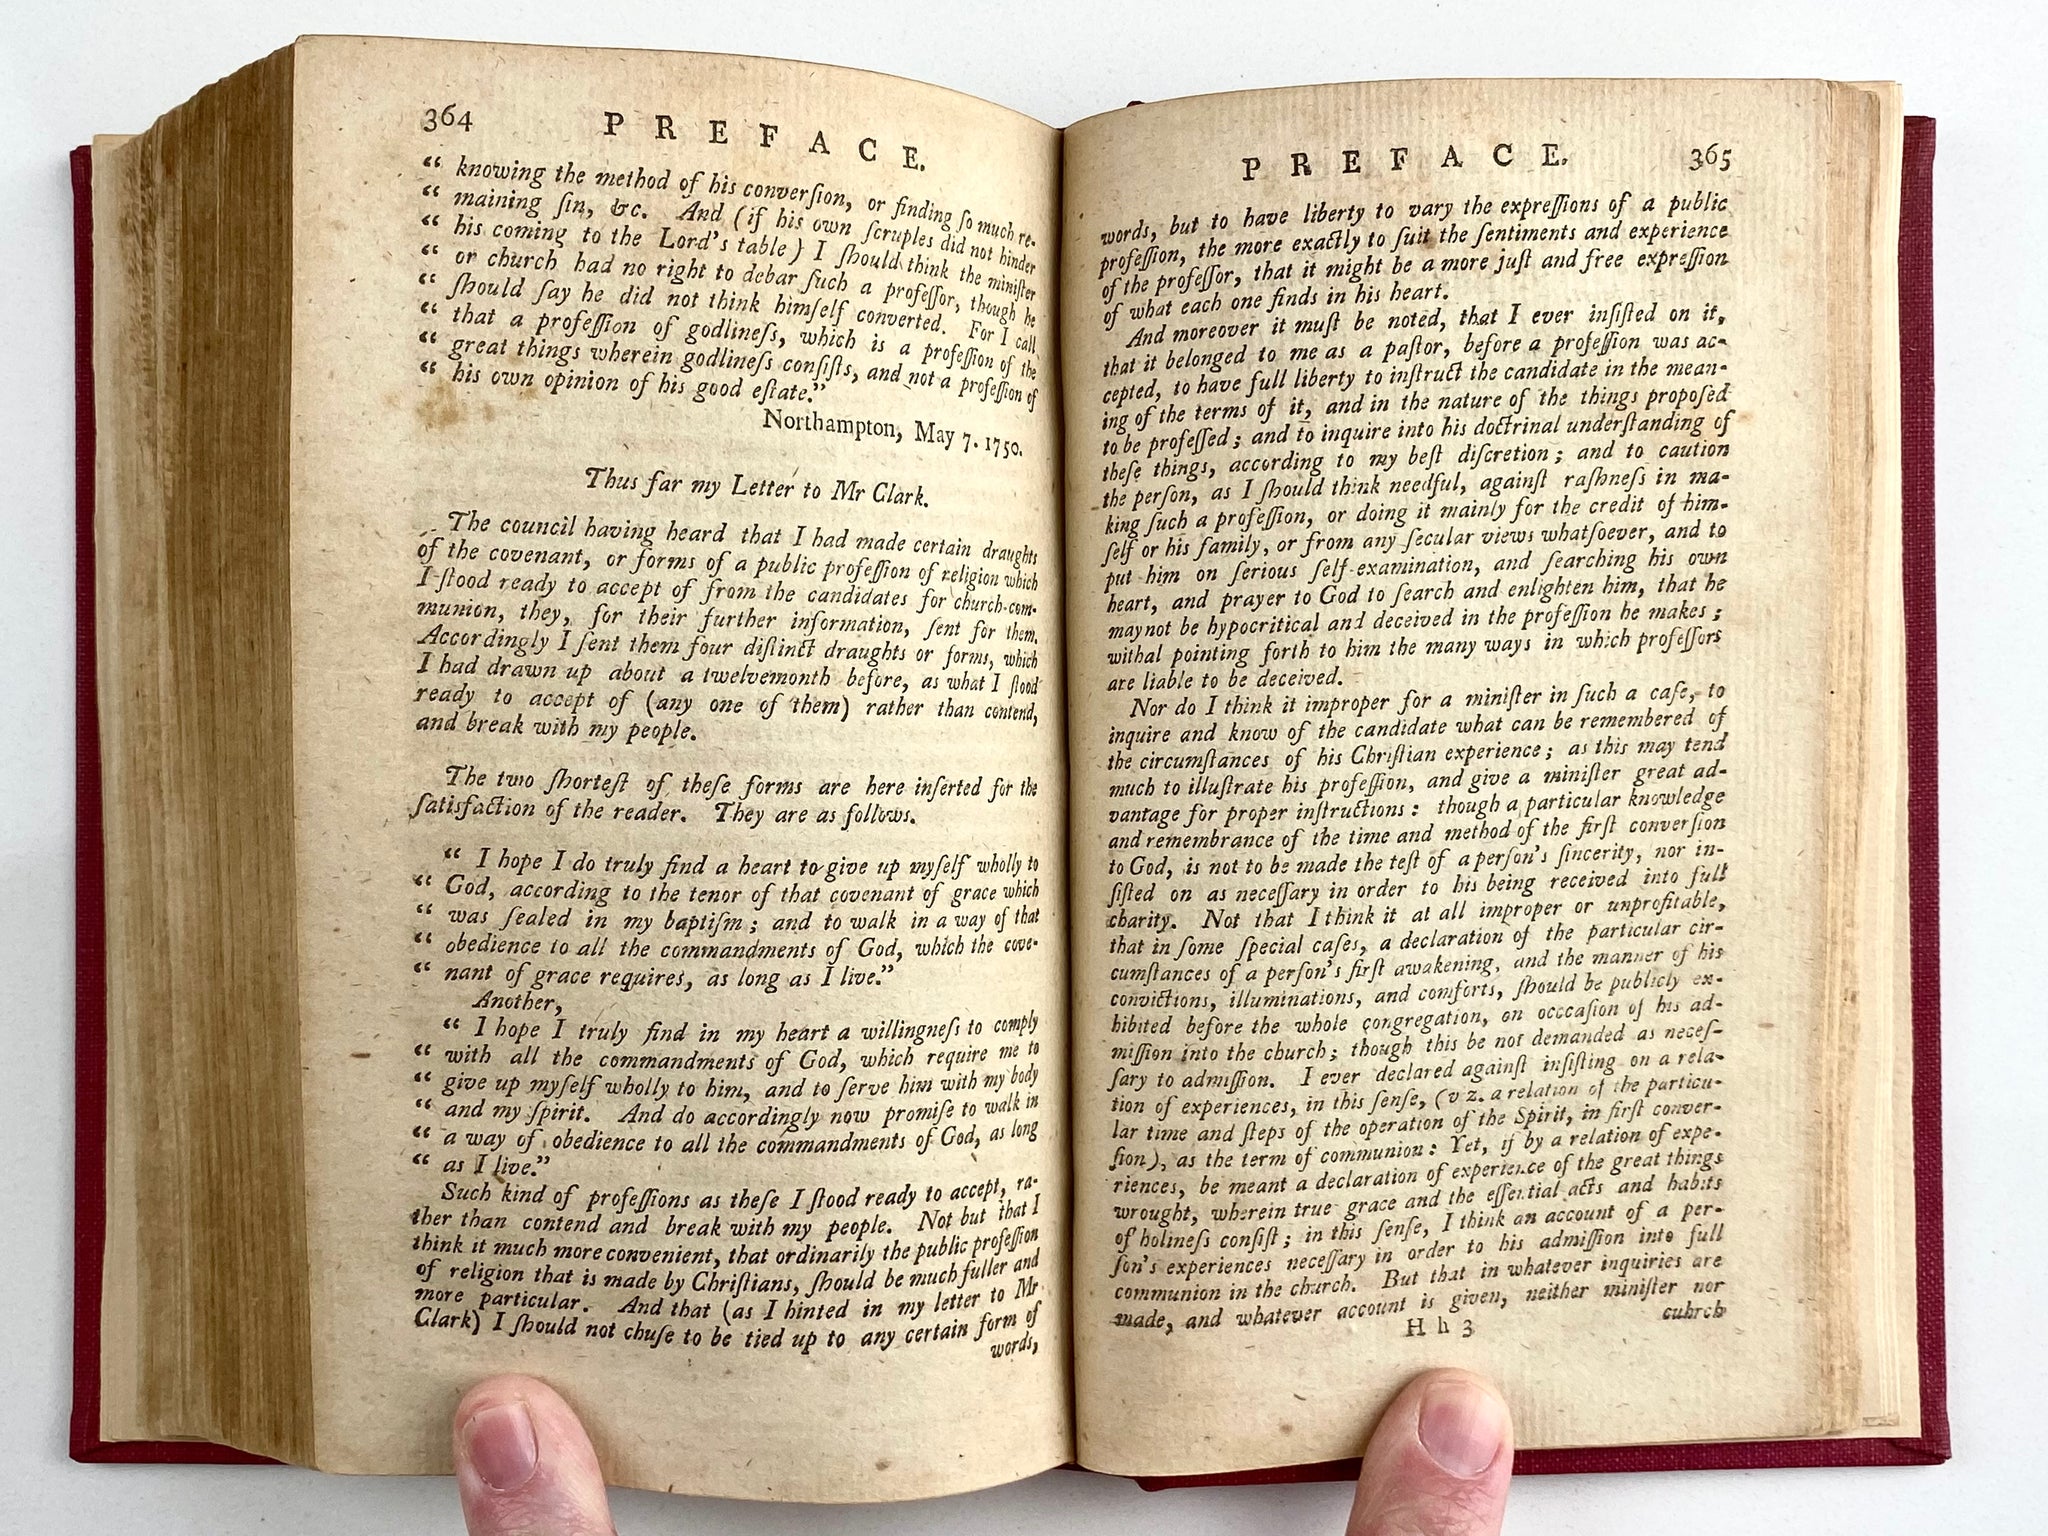 364 PREFACE.
“ knowing the method of his converſion, or finding ſo much re-
“ maining ſin, &c. And (if his own ſcruples did not hinder
“ his coming to the Lord's table) I ſhould think the miniſter
“ or church had no right to debar ſuch a profeſſor, though he
“ ſhould ſay he did not think himſelf converted. For I call
“ that a profeſſion of godlineſs, which is a profeſſion of the
“ great things wherein godlineſs conſiſts, and not a profeſſion of
“ his own opinion of his good eſtate.”
Northampton, May 7. 1750.
Thus far my Letter to Mr Clark.
The council having heard that I had made certain draughts
of the covenant, or forms of a public profeſſion of religion which
I ſtood ready to accept of from the candidates for church-com-
munion, they, for their further information, ſent for them.
Accordingly I ſent them four diſtinct draughts or forms, which
I had drawn up about a twelvemonth before, as what I ſtood
ready to accept of (any one of them) rather than contend,
and break with my people.
The two ſhorteſt of theſe forms are here inſerted for the
ſatisfaction of the reader. They are as follows.
“ I hope I do truly find a heart to give up myſelf wholly to
“ God, according to the tenor of that covenant of grace which
“ was ſealed in my baptiſm; and to walk in a way of that
“ obedience to all the commandments of God, which the cove-
“ nant of grace requires, as long as I live.”
Another,
“ I hope I truly find in my heart a willingneſs to comply
“ with all the commandments of God, which require me to
“ give up myſelf wholly to him, and to ſerve him with my body
“ and my ſpirit. And do accordingly now promiſe to walk in
“ a way of obedience to all the commandments of God, as long
“ as I live.”
Such kind of profeſſions as theſe I ſtood ready to accept, ra-
ther than contend and break with my people. Not but that I
think it much more convenient, that ordinarily the public profeſſion
of religion that is made by Chriſtians, ſhould be much fuller and
more particular. And that (as I hinted in my letter to Mr
Clark) I ſhould not chuſe to be tied up to any certain form of
words,
PREFACE. 365
words, but to have liberty to vary the expreſſions of a public
profeſſion, the more exactly to ſuit the ſentiments and experience
of the profeſſor, that it might be a more juſt and free expreſſion
of what each one finds in his heart.
And moreover it muſt be noted, that I ever inſiſted on it,
that it belonged to me as a paſtor, before a profeſſion was ac-
cepted, to have full liberty to inſtruct the candidate in the mean-
ing of the terms of it, and in the nature of the things propoſed
to be profeſſed; and to inquire into his doctrinal underſtanding of
theſe things, according to my beſt diſcretion; and to caution
the perſon, as I ſhould think needful, againſt raſhneſs in ma-
king ſuch a profeſſion, or doing it mainly for the credit of him-
ſelf or his family, or from any ſecular views whatſoever, and to
put him on ſerious ſelf-examination, and ſearching his own
heart, and prayer to God to ſearch and enlighten him, that he
may not be hypocritical and deceived in the profeſſion he makes;
withal pointing forth to him the many ways in which profeſſors
are liable to be deceived.
Nor do I think it improper for a miniſter in ſuch a caſe, to
inquire and know of the candidate what can be remembered of
the circumſtances of his Chriſtian experience; as this may tend
much to illuſtrate his profeſſion, and give a miniſter great ad-
vantage for proper inſtructions: though a particular knowledge
and remembrance of the time and method of the firſt converſion
to God, is not to be made the teſt of a perſon's ſincerity, nor in-
ſiſted on as neceſſary in order to his being received into full
charity. Not that I think it at all improper or unprofitable,
that in ſome ſpecial caſes, a declaration of the particular cir-
cumſtances of a perſon's firſt awakening, and the manner of his
convictions, illuminations, and comforts, ſhould be publicly ex-
hibited before the whole congregation, on occcaſion of his ad-
miſſion into the church; though this be not demanded as neceſ-
ſary to admiſſion. I ever declared againſt inſiſting on a rela-
tion of experiences, in this ſenſe, (v z. a relation of the particu-
lar time and ſteps of the operation of the Spirit, in firſt conver-
ſion), as the term of communion: Yet, if by a relation of expe-
riences, be meant a declaration of experience of the great things
wrought, wherein true grace and the eſſential acts and habits
of holineſs conſiſt; in this ſenſe, I think an account of a per-
ſon's experiences neceſſary in order to his admiſſion into full
communion in the church. But that in whatever inquiries are
made, and whatever account is given, neither miniſter nor
H h 3 cuhrch